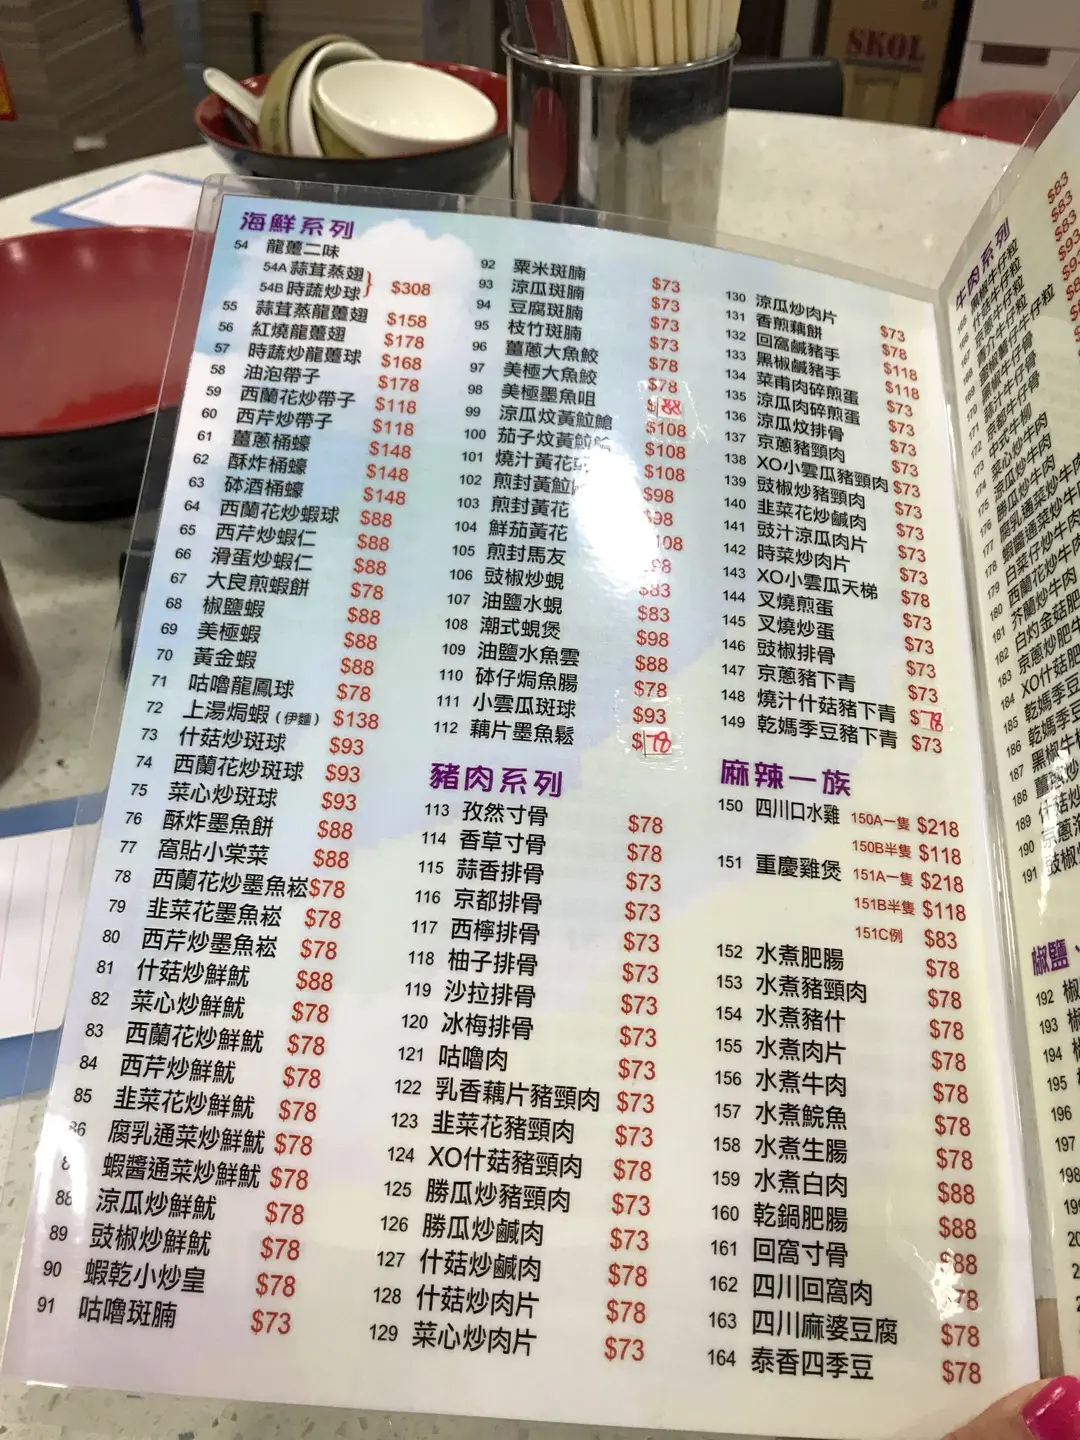 SKOL
海鮮系列
54 龍躉二味
54A 蒜茸蒸翅
54B 時蔬炒球 $308
55 蒜茸蒸龍躉翅 $158
56 紅燒龍躉翅 $178
57 時蔬炒龍躉球 $168
58 油泡帶子 $178
59 西蘭花炒帶子 $118
60 西芹炒帶子 $118
61 薑蔥桶蠔 $148
62 酥炸桶蠔 $148
63 砵酒桶蠔 $148
64 西蘭花炒蝦球 $88
65 西芹炒蝦仁 $88
66 滑蛋炒蝦仁 $88
67 大良煎蝦餅 $78
68 椒鹽蝦 $88
69 美極蝦 $88
70 黃金蝦 $88
71 咕嚕龍鳳球 $78
72 上湯焗蝦(伊麵) $138
73 什菇炒斑球 $93
74 西蘭花炒斑球 $93
75 菜心炒斑球 $93
76 酥炸墨魚餅 $88
77 窩貼小棠菜 $88
78 西蘭花炒墨魚崧 $78
79 韭菜花墨魚崧 $78
80 西芹炒墨魚崧 $78
81 什菇炒鮮魷 $88
82 菜心炒鮮魷 $78
83 西蘭花炒鮮魷 $78
84 西芹炒鮮魷 $78
85 韭菜花炒鮮魷 $78
86 腐乳通菜炒鮮魷 $78
蝦醬通菜炒鮮魷 $78
88 涼瓜炒鮮魷 $78
89 豉椒炒鮮魷 $78
90 蝦乾小炒皇 $78
91 咕嚕斑腩 $73
92 粟米斑腩 $73
93 涼瓜斑腩 $73
94 豆腐斑腩 $73
95 枝竹斑腩 $73
96 薑蔥大魚鮫 $78
97 美極大魚鮫 $78
98 美極墨魚咀 $88
99 涼瓜炆黃䱽鎗 $108
100 茄子炆黃䱽 $108
101 燒汁黃花 $108
102 煎封黃䱽 $98
103 煎封黃花 $98
104 鮮茄黃花 $108
105 煎封馬友 $98
106 豉椒炒蜆 $83
107 油鹽水蜆 $83
108 潮式蜆煲 $98
109 油鹽水魚雲 $88
110 砵仔焗魚腸 $78
111 小雲瓜斑球 $93
112 藕片墨魚鬆 $78
豬肉系列
113 孜然寸骨 $78
114 香草寸骨 $78
115 蒜香排骨 $73
116 京都排骨 $73
117 西檸排骨 $73
118 柚子排骨 $73
119 沙拉排骨 $73
120 冰梅排骨 $73
121 咕嚕肉 $73
122 乳香藕片豬頸肉 $73
123 韭菜花豬頸肉 $73
124 XO什菇豬頸肉 $78
125 勝瓜炒豬頸肉 $73
126 勝瓜炒鹹肉 $73
127 什菇炒鹹肉 $78
128 什菇炒肉片 $78
129 菜心炒肉片 $73
130 涼瓜炒肉片 $73
131 香煎藕餅 $78
132 回窩鹹豬手 $118
133 黑椒鹹豬手 $118
134 菜甫肉碎煎蛋 $73
135 涼瓜肉碎煎蛋 $73
136 涼瓜炆排骨 $73
137 京蔥豬頸肉 $73
138 XO小雲瓜豬頸肉 $73
139 豉椒炒豬頸肉 $73
140 韭菜花炒鹹肉 $73
141 豉汁涼瓜肉片 $73
142 時菜炒肉片 $73
143 XO小雲瓜天梯 $78
144 叉燒煎蛋 $73
145 叉燒炒蛋 $73
146 豉椒排骨 $73
147 京蔥豬下青 $73
148 燒汁什菇豬下青 $78
149 乾媽季豆豬下青 $73
麻辣一族
150 四川口水雞 150A一隻 $218
150B半隻 $118
151 重慶雞煲 151A一隻 $218
151B半隻 $118
151C例 $83
152 水煮肥腸 $78
153 水煮豬頸肉 $78
154 水煮豬什 $78
155 水煮肉片 $78
156 水煮牛肉 $78
157 水煮鯇魚 $78
158 水煮生腸 $78
159 水煮白肉 $88
160 乾鍋肥腸 $88
161 回窩寸骨 $88
162 四川回窩肉 $78
163 四川麻婆豆腐 $78
164 泰香四季豆 $78
牛肉系列
$83
$83
$83
$93
菜心炒牛肉
涼瓜炒牛肉
勝瓜炒牛肉
178 白菜仔炒牛肉
179 西蘭花炒牛肉
180 芥蘭炒牛肉
181 白灼金菇肥
182 京蔥炒肥牛
183 XO什菇肥
184 乾媽季豆
185 乾媽季豆
186 黑椒牛
187
188
189 什菇炒
190 京蔥
191 豉椒
椒鹽
192 椒
193 椒
194
195
196
197
198